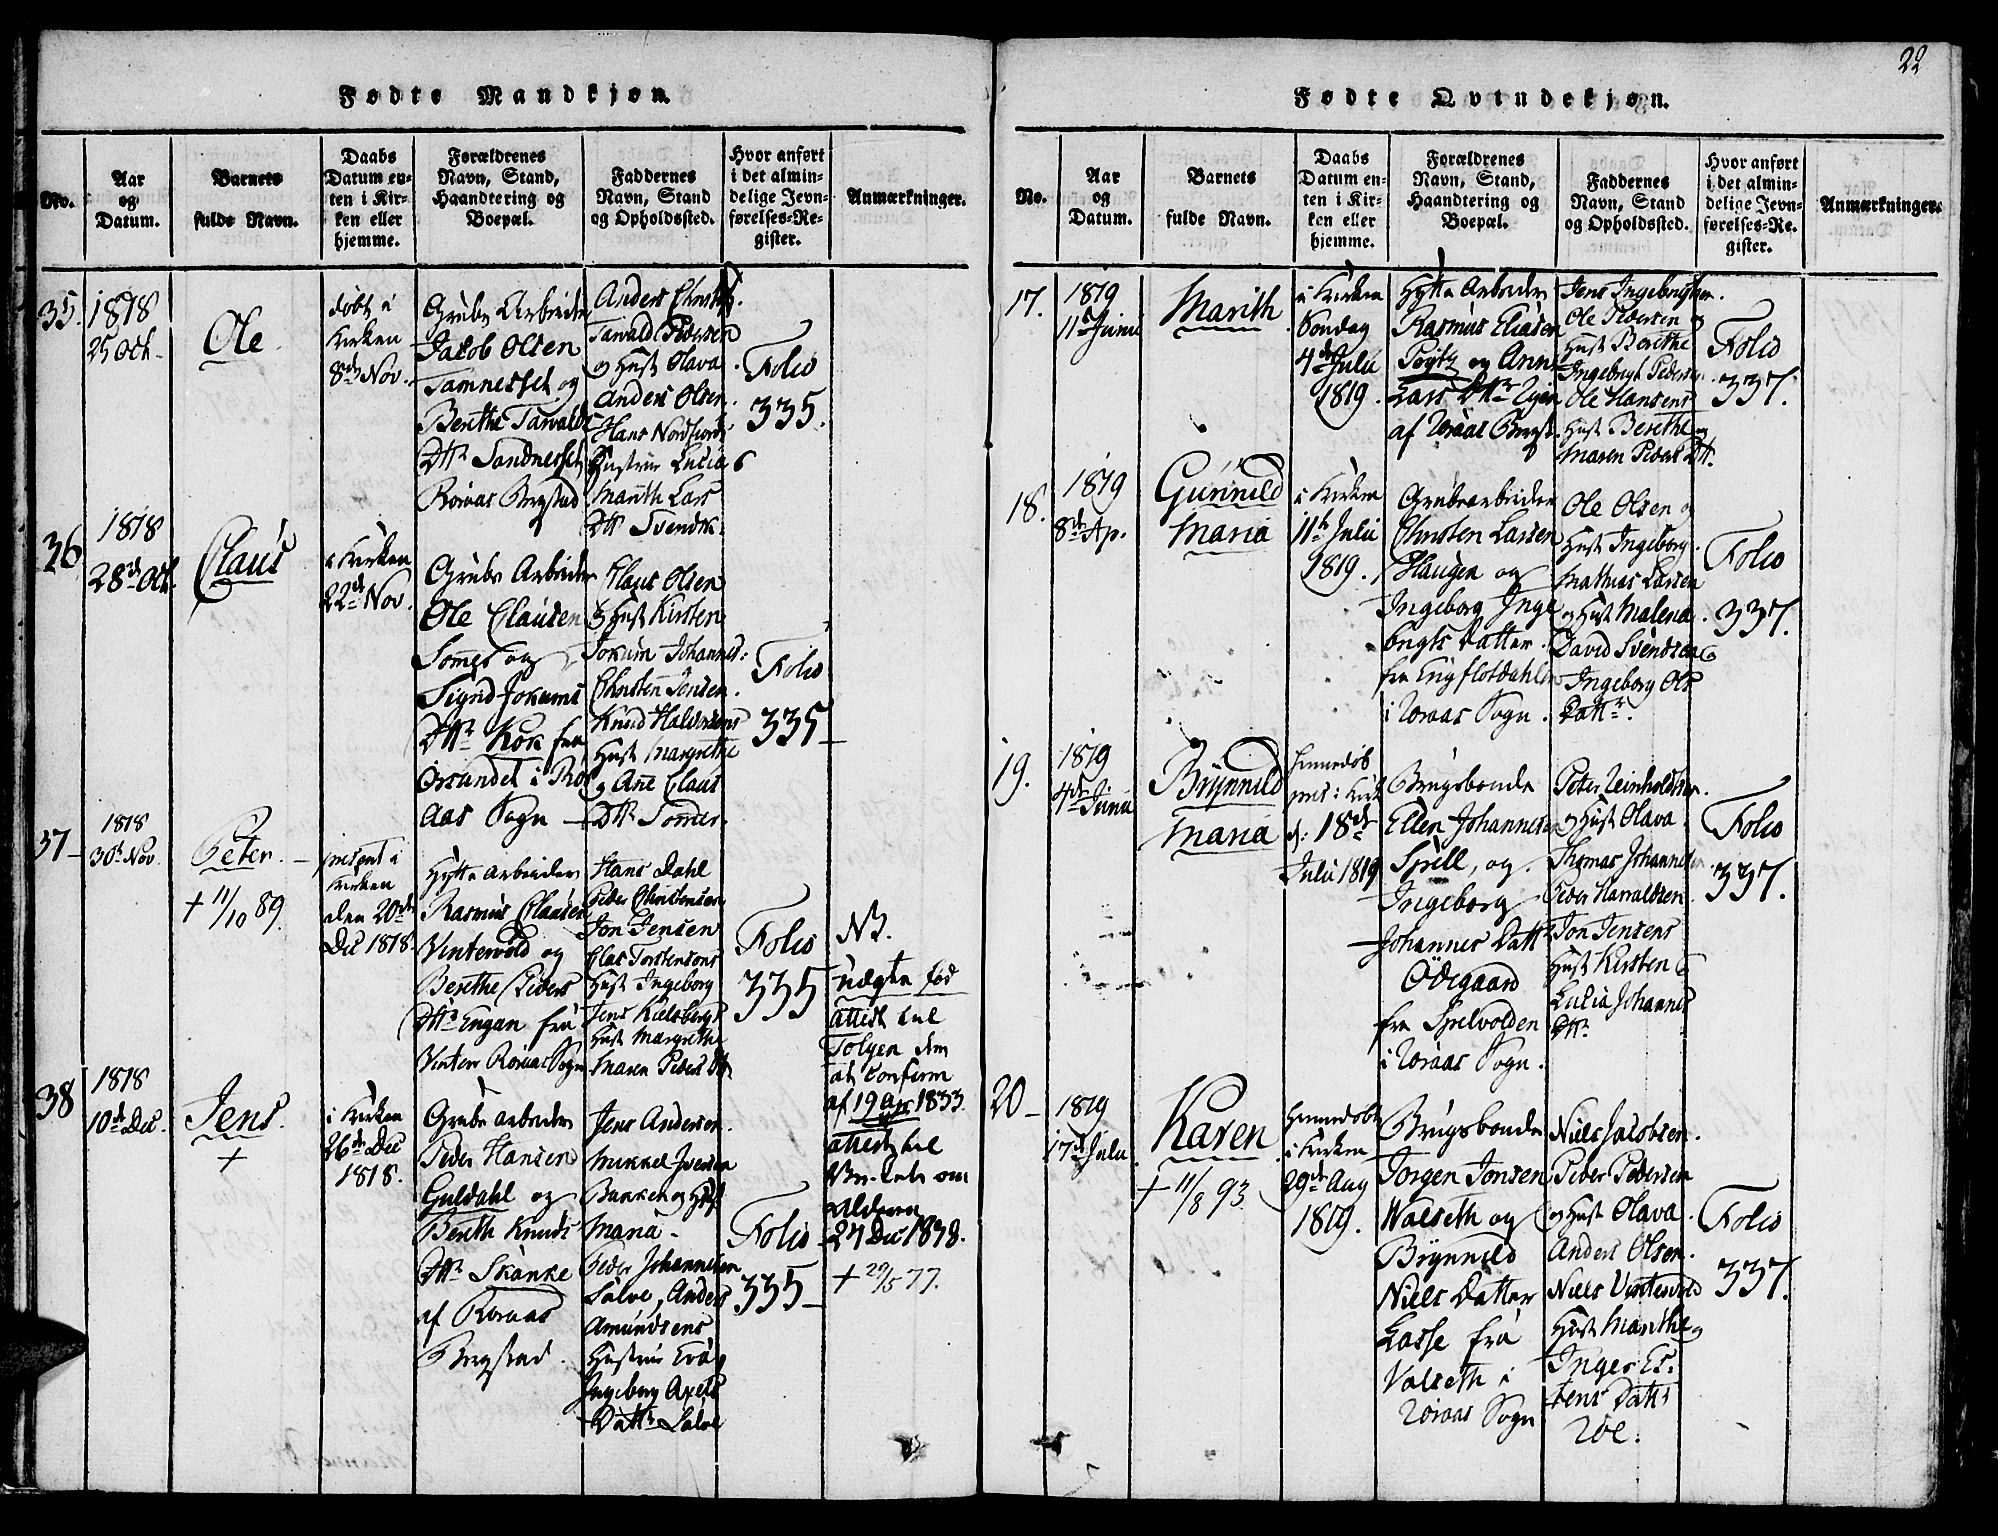 22
Fødte Mandkjøn.
No.
Aar
og
Datum.
Barnets
fulde Navn.
Daabs
Datum en-
ten i Kir-
ken eller
hjemme.
Forældrenes
Navn, Stand,
Haandtering og
Boepæl.
Faddernes
Navn, Stand
og Opholdssted.
Hvor anført
i det almin-
delige Jevn-
førelses-Re-
gister.
Anmærkninger.
35.
1818
25 Oct.
Ole
døbt i
Kirken
8de Nov.
Grube Arbeider
Jacob Olsen
Tamnesset og
Berithe Tarvalds
Dttr Sandnesset
Røraas Bergstad
Anders
Tarvald Pedersen
og Hust Olava
Anders Olsen
Hans Nordfiords
Hustrue Lucia &
Marith Lars
Dttr Svendk.
Folio
335.
36
1818
28de Oct.
Claus
i Kirken
22de Nov.
Grube Arbeider
Ole Clausen
Sommer og
Sigrid Jokums
Dttr Kok fra
Orsundet i Rør
aas Sogn
Claus Olsen
& Hust Kirsten
Jokum Johannes:
Christen Jensen
Knud Halvorsens
Hust Margrethe
og Ane Claus
Dttr Sommer.
Folio
335
37
1818
30te Nov.
Peter.
+ 11/10 89.
present i
Kirken
den 20de
Dec 1818.
Hytte Arbeider
Rasmus Clausen
Vintervold og
Berethe Peders
Dttr Engan fra
Vintervol Røraas Sogn
Hans Dahl
Peder Christensen
Jon Jensen
Clas Torstensons
Hust Ingeborg
Jens Kielsbergs
Hust Margrethe
Maren Peders Dtt
Folio
335
NB.
udgten fød
attest til
Tolgen
at Confirm
af 19 Apr 1833
attest til
om
Alderen
27 Dec 1838.
+ 29/5 77.
38
1818
10de Dec.
Jens.
+
i Kirken
26de Dec
1818.
Grube arbeider
Peder Hansen
Guldahl og
Berith Knuds
Dttr Skanke
af Røraas
Bergstad.
Jens Andersen
Mikkel Iversen
Bakken og Hust
Maria
Peder Johannesen
Salve, Anders
Amundsens
Hustrue Eva &
Ingeborg Axels
Datter Salve
Folio
335
Fødte Qvindekjøn.
No.
Aar
og
Datum.
Barnets
fulde Navn.
Daabs
Datum en-
ten i Kir-
ken eller
hjemme.
Forældrenes
Navn, Stand,
Haandtering og
Boepæl.
Faddernes
Navn, Stand
og Opholdssted.
Hvor anført
i det almin-
delige Jevn-
førelses-Re-
gister.
Anmærkninger.
17.
1819
11te Junii
Marith
i Kirken
Søndag
4de Julii
1819.
Hytte Arbeider
Rasmus Eliasen
og Anne
Lars Dttr
af Røraas Bergst.
Jens Ingebrigtsen
Ole Pedersen og
Hust Berithe
Ingebrigt Pedersen
Ole Hansens
Hust Berethe og
Maren Peders Dtt.
Folio
337.
18.
1819
8de Ap.
Gunnild
Maria
i Kirken
11te Julii
1819.
Grubearbeider
Christen Larsen
Haugen og
Ingeborg Inge
brigts Datter
fra
i Røraas Sogn.
Ole Olsen og
Hust Ingeborg
Mathias Larsen
og Hust Malena
David Svendsen &
Ingeborg Ols
Dattr.
Folio
337.
19.
1819
4de Junii
Brynnild
Maria
hiemedøb
pres: i Kirk
d: 18de
Julii 1819
Brugsbonde
Elden Johannesen
Spell, og
Ingeborg
Johannes Datt
Ødegaard
fra Spelvolden
i Røraas Sogn.
Peter Reinholdtsen
og Hust Olava
Thomas Johannes
Peder Harraldsen
Jon Jensens
Hust Kirsten &
Lucia Johannes
Dttr
Folio
337.
20
1819
17de Julii
Karen
+ 11/8 93.
hiemedøbt
i Kirken
29de Aug
1819.
Brugsbonde
Jørgen Jonsen
Walseth og
Brynnild
Niels Datter
Lasse fra
Valseth i
Røraas Sogn
Niels Jacobsen.
Peder Pedersen
og Hust Olava
Anders Olsen
Niels Vintervold
Hust Marithe og
Inger Es-
tens Datt
Røe.
Folio
337.